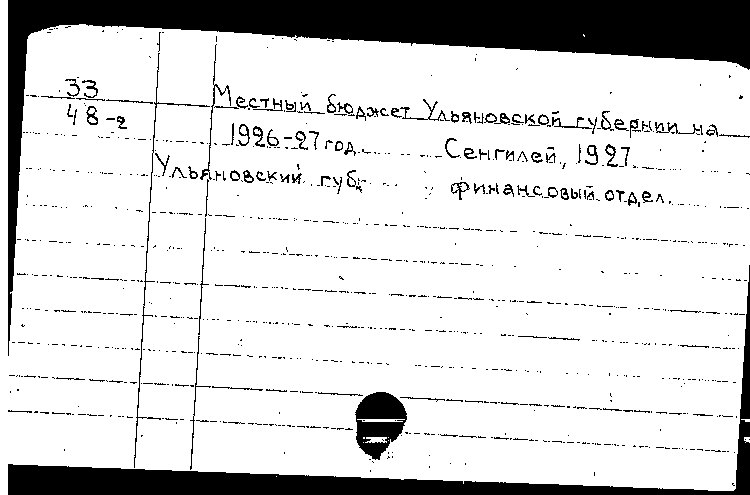 33
48-2
Местный бюджет Ульяновской губернии на
1926-27 год. Сенгилей, 1927.
Ульяновский губ. финансовый отдел.